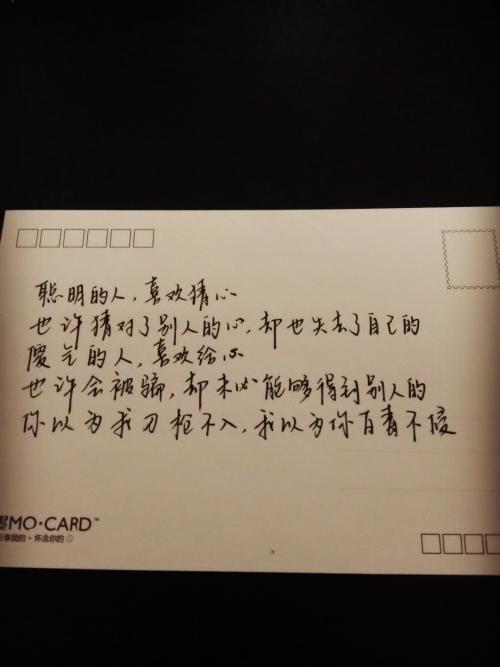 聪明的人，喜欢猜心
也许猜对了别人的心，却也失去了自己的
傻气的人，喜欢给心
也许会被骗，却未必能够得到别人的
你以为我刀枪不入，我以为你百毒不侵
MO·CARD™
分享我的、怀念你的